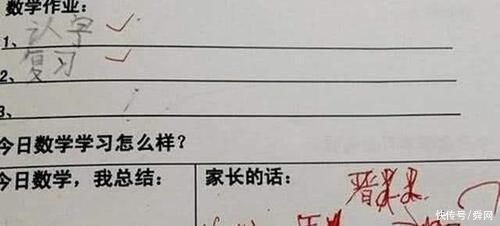 数学作业：
1、认字
2、复习
3、
今日数学学习怎么样？
今日数学，我总结：
家长的话：
快传号/舜网